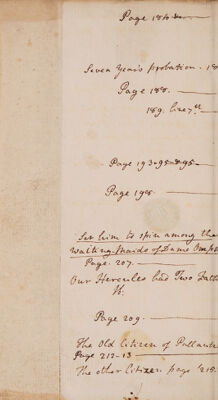 Page 184
Seven Years probation. 18
Page 188.
189. line 7th
Page 193-95-&95-
Page 198.
Set him to spin among the
Waiting Maids of Dame Omph
Page. 207.
Our Hercules had Two Fath
Page 209.
The Old Citizen of Pallanti
Page 212-13
The other Citizen page 215.